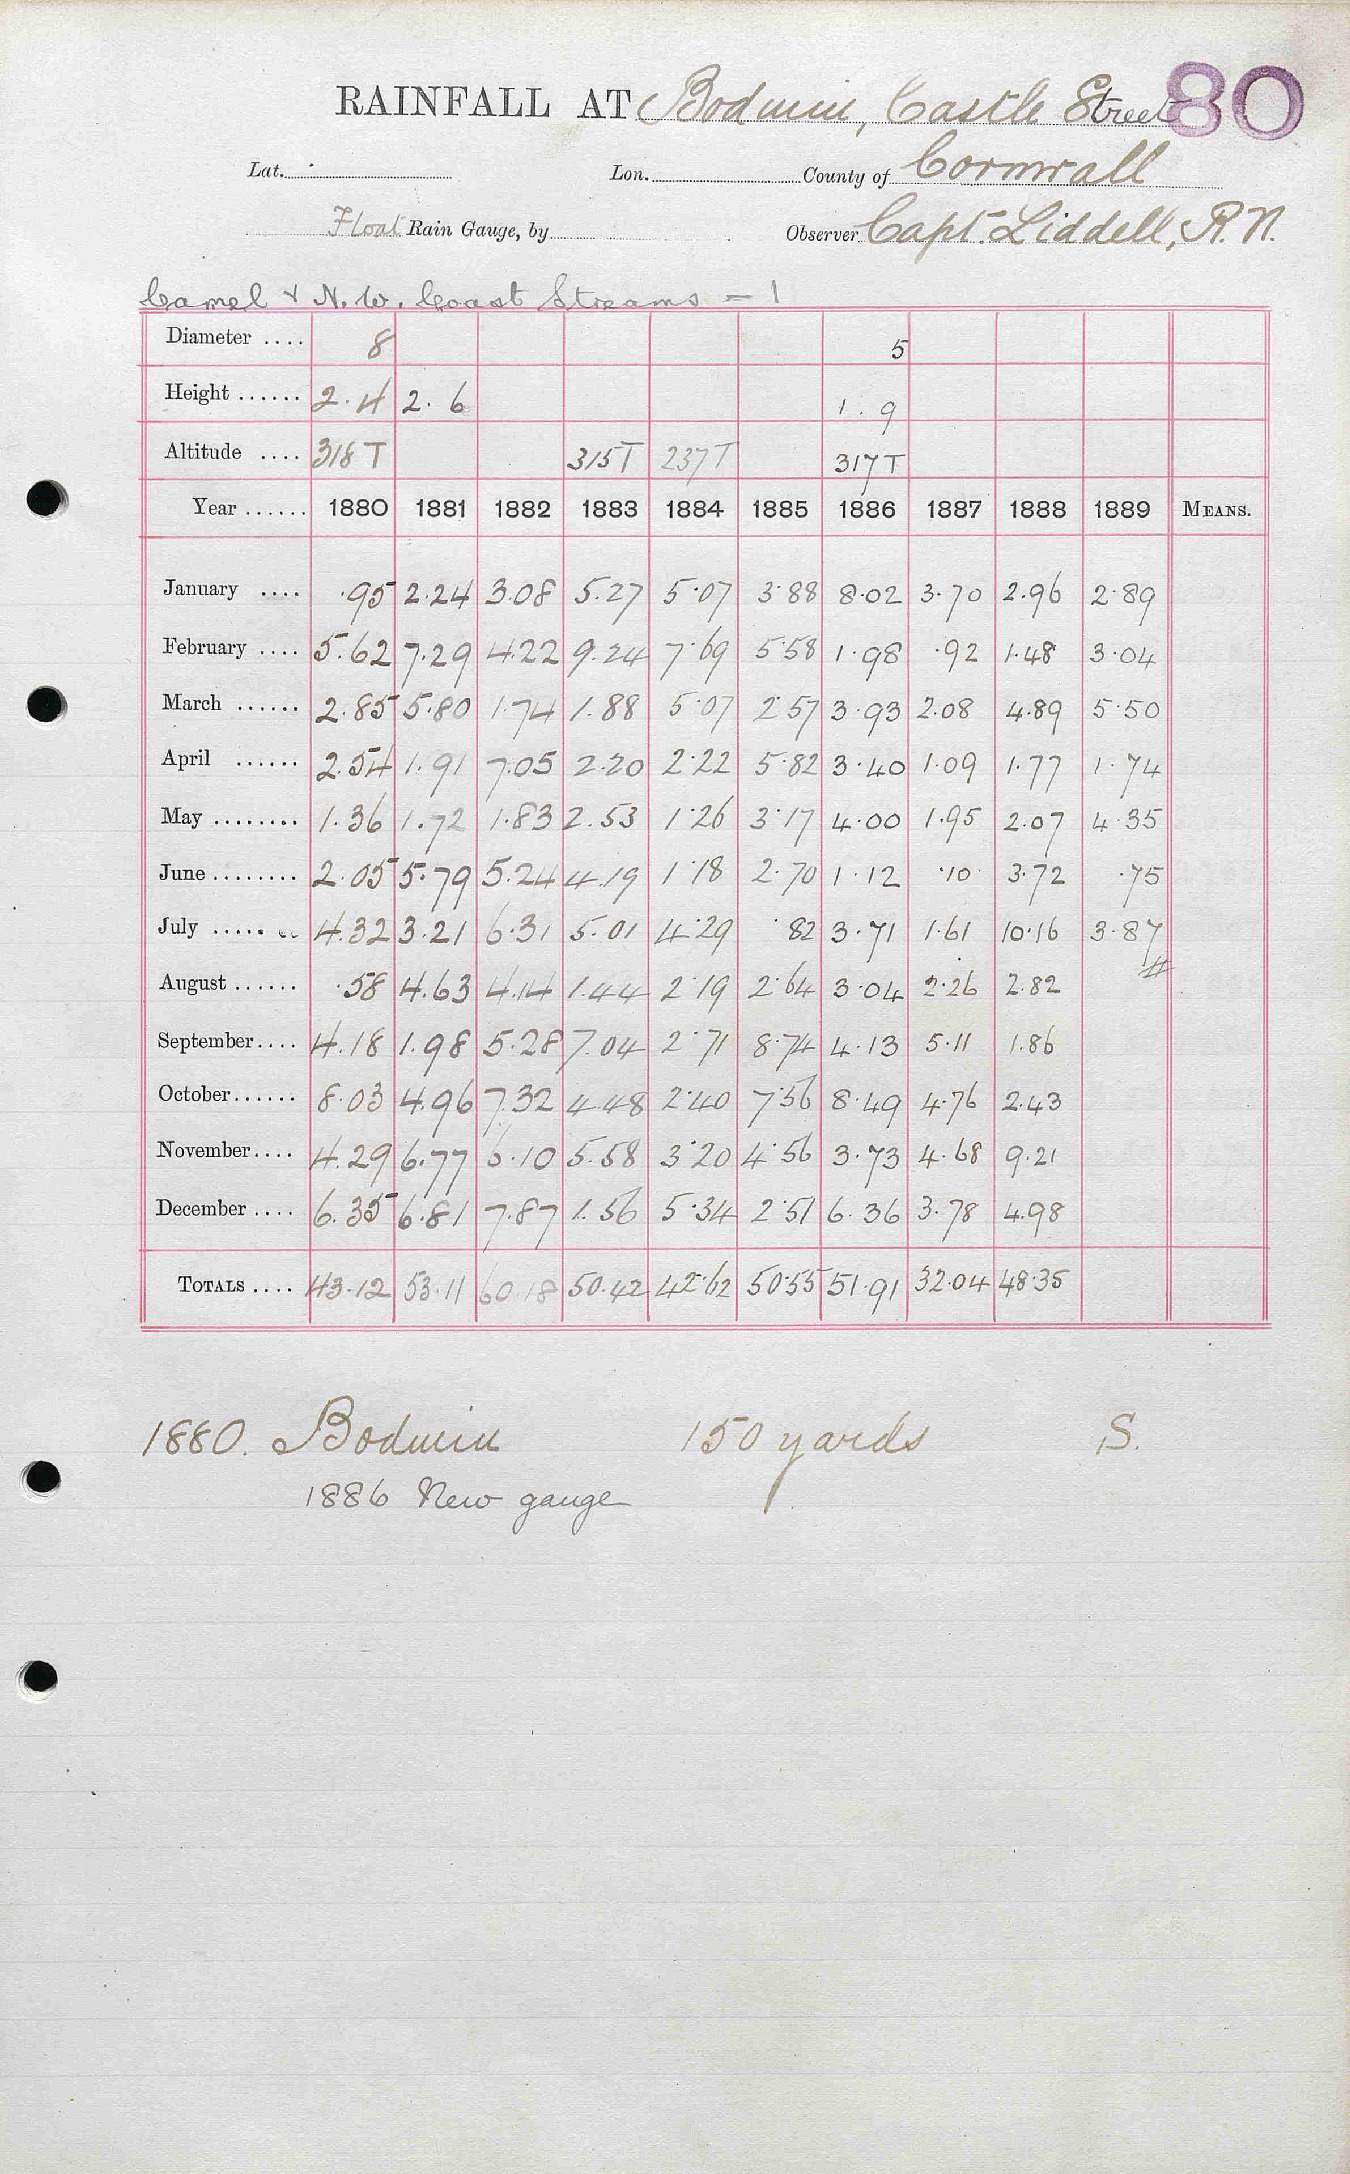 80
RAINFALL AT Bodmin, Castle Street
Lat. Lon. County of Cornwall
Float Rain Gauge, by Observer Capt. Liddell, R.N.
Camel & N.W. Coast Streams = 1
Diameter .... 8 5
Height ...... 2.4 2.6 1.9
Altitude .... 318T 315T 237T 317T
Year ...... 1880 1881 1882 1883 1884 1885 1886 1887 1888 1889 MEANS.
January .... .95 2.24 3.08 5.27 5.07 3.88 8.02 3.70 2.96 2.89
February .... 5.62 7.29 4.22 9.24 7.69 5.58 1.98 .92 1.48 3.04
March ...... 2.85 5.80 1.74 1.88 5.07 2.57 3.93 2.08 4.89 5.50
April ...... 2.54 1.91 7.05 2.20 2.22 5.82 3.40 1.09 1.77 1.74
May ........ 1.36 1.72 1.83 2.53 1.26 3.17 4.00 1.95 2.07 4.35
June ........ 2.05 5.79 5.24 4.19 1.18 2.70 1.12 .10 3.72 .75
July ........ 4.32 3.21 6.31 5.01 4.29 .82 3.71 1.61 10.16 3.87
August ...... .58 4.63 4.14 1.44 2.19 2.64 3.04 2.26 2.82
September .... 4.18 1.98 5.28 7.04 2.71 8.74 4.13 5.11 1.86
October ...... 8.03 4.96 7.32 4.48 2.40 7.56 8.49 4.76 2.43
November .... 4.29 6.77 6.10 5.58 3.20 4.56 3.73 4.68 9.21
December .... 6.35 6.81 7.87 1.56 5.34 2.51 6.36 3.78 4.98
TOTALS .... 43.12 53.11 60.18 50.42 42.62 50.55 51.91 32.04 48.35
1880. Bodmin 150 yards S.
1886 New gauge